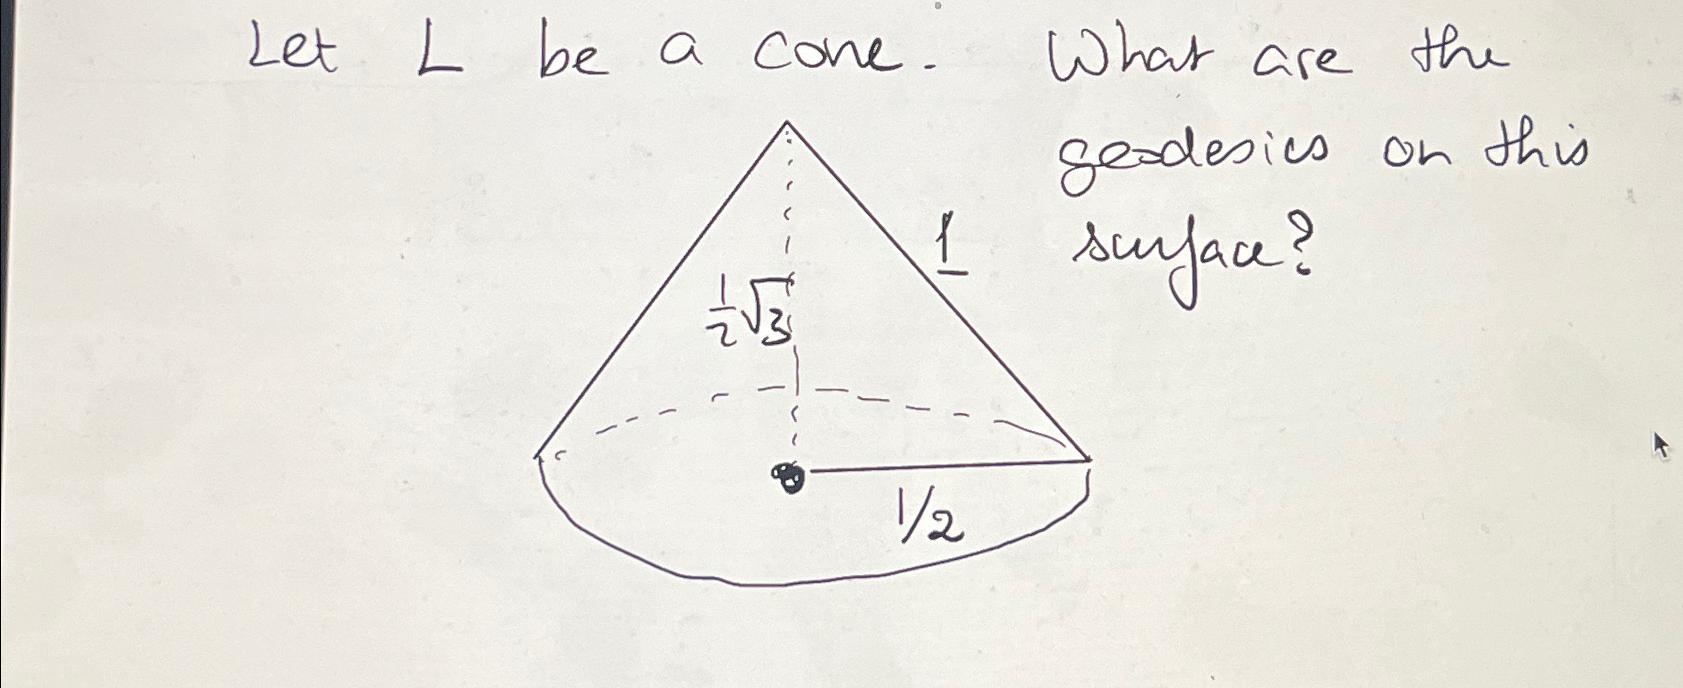 Let L be a cone. What are the
geodesics on this
surface?
1
½√3
1/2